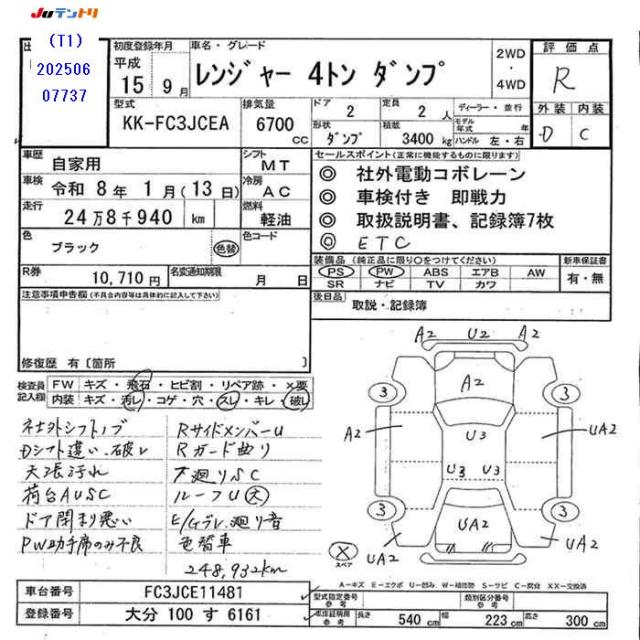 JUテントリ
(T1)
202506
07737
初度登録年月
平成
15 9月
車名・グレード
レンジャー 4トン ダンプ
2WD
・
4WD
評価点
R
外装 内装
D C
型式
KK-FC3JCEA
排気量
6700 CC
ドア
2
定員
2 人
形状
ダンプ
積載
3400 kg
ディーラー・並行
モデル年式 年
ハンドル 左・右
車歴
自家用
シフト
MT
車検
令和 8年 1月(13日)
冷房
AC
走行
24万8千940 km
燃料
軽油
色
ブラック
色替
色コード
R券
10,710円
名変通知期限
月 日
セールスポイント(正常に機能するものに限ります)
◎ 社外電動コボレーン
◎ 車検付き 即戦力
◎ 取扱説明書、記録簿7枚
◎ ETC
装備品(純正品に限り○をつけてください)
PS PW ABS エアB AW
SR ナビ TV カワ
新車保証書
有・無
後日品
取説・記録簿
注意事項申告欄(不具合内容等は具体的に記入して下さい)
修復歴 有〔箇所 〕
検査員記入欄
FW キズ・飛石・ヒビ割・リペア跡・×要
内装 キズ・汚レ・コゲ・穴・スレ・キレ・破レ
社外シフトノブ
Dシフト違い、破レ
天張汚れ
荷台AUSC
ドア閉まり悪い
PW助手席のみ不良
RサイドメンバーU
Rガード曲り
下廻りSC
ルーフU大
E/Gデレ、廻り音
色替車
248,932km
A2 U2 A2
A2
3 3
A2 U3 UA2
U3 U3
3 3
UA2
UA2 UA2
X
スペア
A=キズ E=エクボ U=凹み W=補修跡 S=サビ C=腐食 XX=交換済
車台番号
FC3JCE11481
登録番号
大分 100 す 6161
型式指定番号
参考
類別区分番号
参考
車検証記載
参考
長さ
540 cm
幅
223 cm
高さ
300 cm